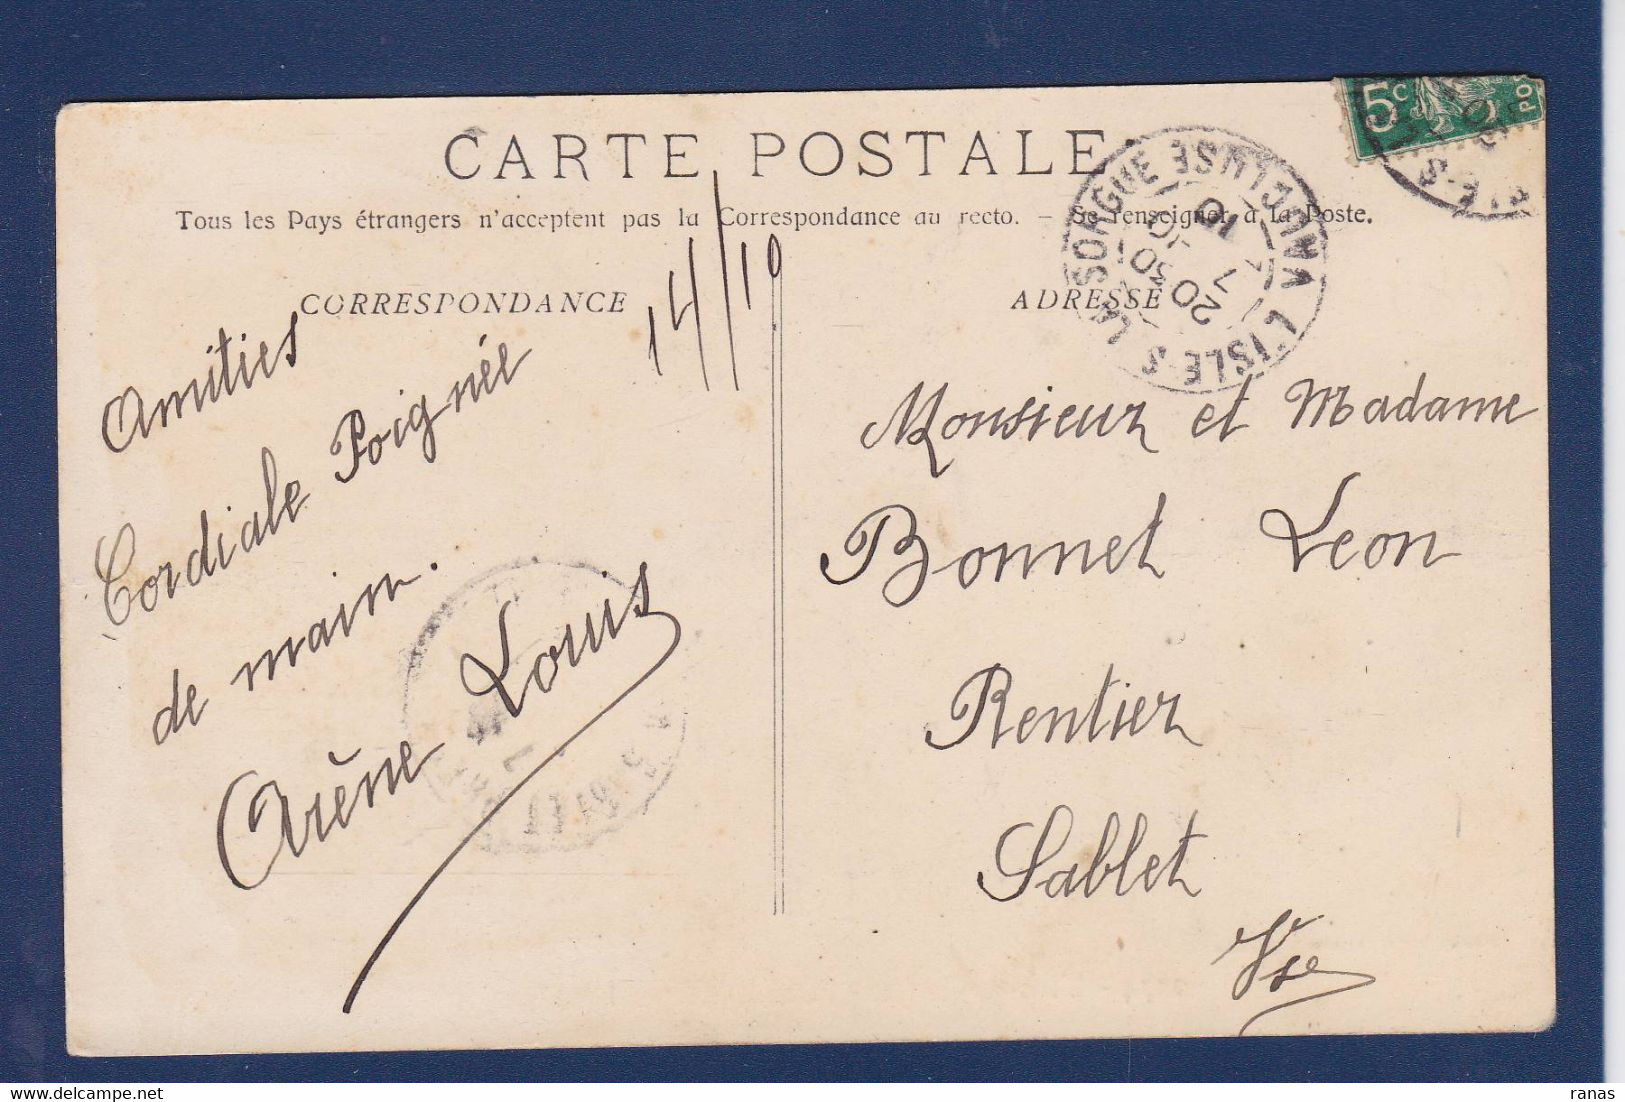 CARTE POSTALE
Tous les Pays étrangers n'acceptent pas la Correspondance au recto. - Se renseigner à la Poste.
CORRESPONDANCE
14/7/10
Amitiés
Cordiale Poignée
de main.
Arène Louis
ADRESSE
Monsieur et Madame
Bonnet Leon
Rentier
Sablet
Vse
5c
PO
L'ISLE S LA SORGUE VAUCLUSE
20 30
7
10
ranas